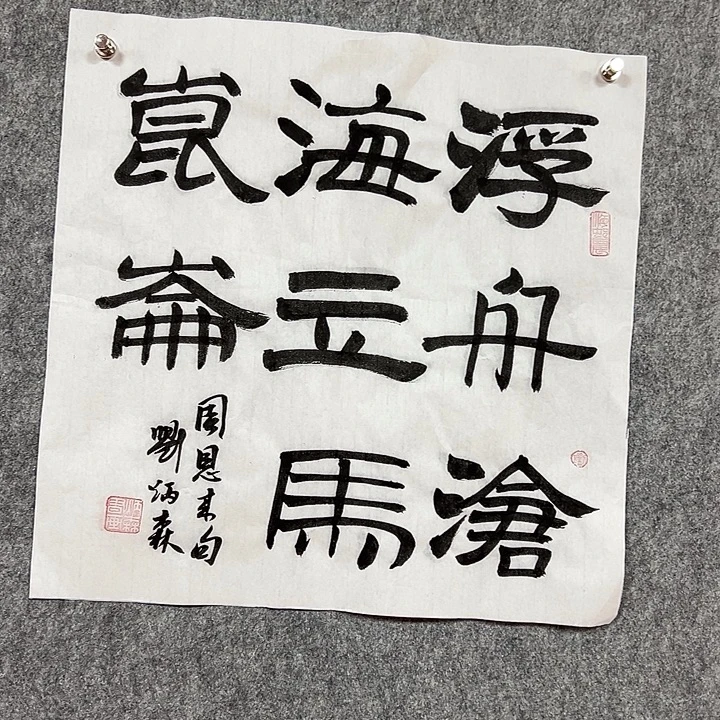 浮舟滄
海立馬
崑崙
周恩来句
劉炳森